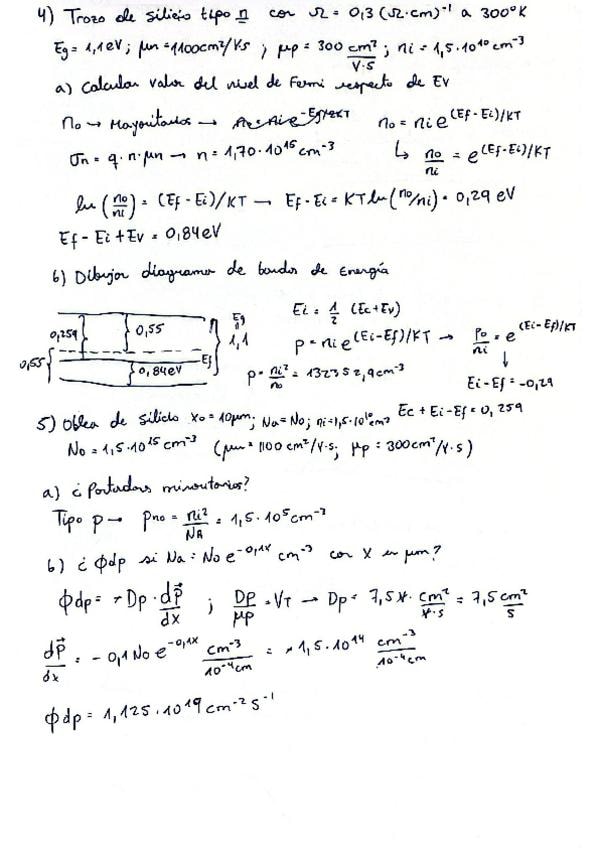 4) Trozo de silicio tipo n con Ω = 0,3 (Ω·cm)⁻¹ a 300°K
Eg = 1,1 eV ; μn = 1100 cm²/Vs ; μp = 300 cm²/V·s ; ni = 1,5·10¹⁰ cm⁻³
a) Calcular valor del nivel de Fermi respecto de Ev
no → Mayoritarios → no = ni e^(Ef-Ei)/KT
σn = q·n·μn → n = 1,70·10¹⁵ cm⁻³ ↳ no/ni = e^(Ef-Ei)/KT
ln (no/ni) = (Ef - Ei)/KT → Ef - Ei = KT ln (no/ni) = 0,29 eV
Ef - Ei + Ev = 0,84 eV
b) Dibujar diagrama de bandas de Energía
0,259 0,55 Eg 1,1
0,55 Ef
0,84 eV
Ei = 1/2 (Ec + Ev)
p = ni e^(Ei-Ef)/KT → po/ni = e^(Ei-Ef)/KT
p = ni²/no = 132352,9 cm⁻³ ↓ Ei - Ef = -0,29
Ec + Ei - Ef = 0,259
5) Oblea de silicio xo = 10 μm ; Na = No ; ni = 1,5·10¹⁰ cm³
No = 1,5·10¹⁵ cm⁻³ (μn = 1100 cm²/V·s ; μp = 300 cm²/V·s)
a) ¿Portadores minoritarios?
Tipo p → pno = ni²/NA = 1,5·10⁵ cm⁻³
b) ¿ Φdp si Na = No e^-0,1x cm⁻³ con x en μm?
Φdp = - Dp · dp/dx ; Dp/μp = VT → Dp = 7,5 V· cm²/V·s = 7,5 cm²/s
dp/dx = - 0,1 No e^-0,1x cm⁻³/10⁻⁴cm = - 1,5·10¹⁴ cm⁻³/10⁻⁴cm
Φdp = 1,125·10¹⁹ cm⁻² s⁻¹